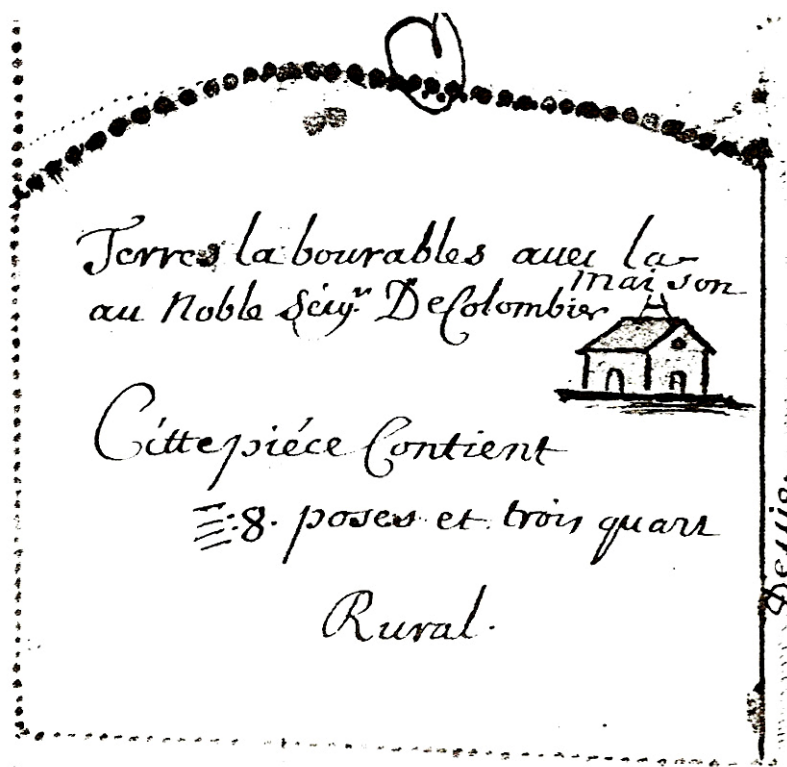 Terres labourables avec la
maison
au Noble Seig.r De Colombier
Citte piéce Contient
8. poses et trois quart
Rural.